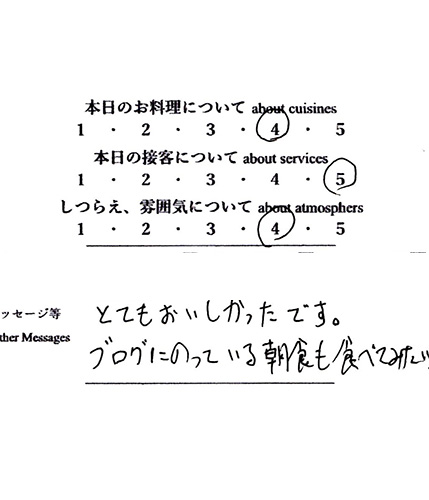 本日のお料理について about cuisines
1 ・ 2 ・ 3 ・ 4 ・ 5
本日の接客について about services
1 ・ 2 ・ 3 ・ 4 ・ 5
しつらえ、雰囲気について about atmosphers
1 ・ 2 ・ 3 ・ 4 ・ 5
ッセージ等
ther Messages
とてもおいしかったです。
ブログにのっている朝食も食べてみたい